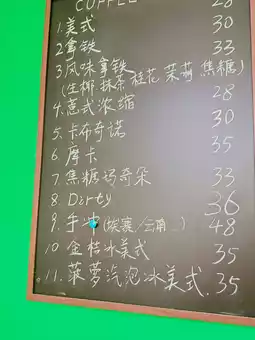 COFFEE
1.美式 28
2.拿铁 30
3.风味拿铁 33
(生椰 抹茶 桂花 茉莉 焦糖)
4.意式浓缩 28
5.卡布奇诺 30
6.摩卡 35
7.焦糖玛奇朵 33
8.Dirty 36
9.手冲(埃塞/云南..) 48
10.金桔冰美式 35
11.菠萝汽泡冰美式.35